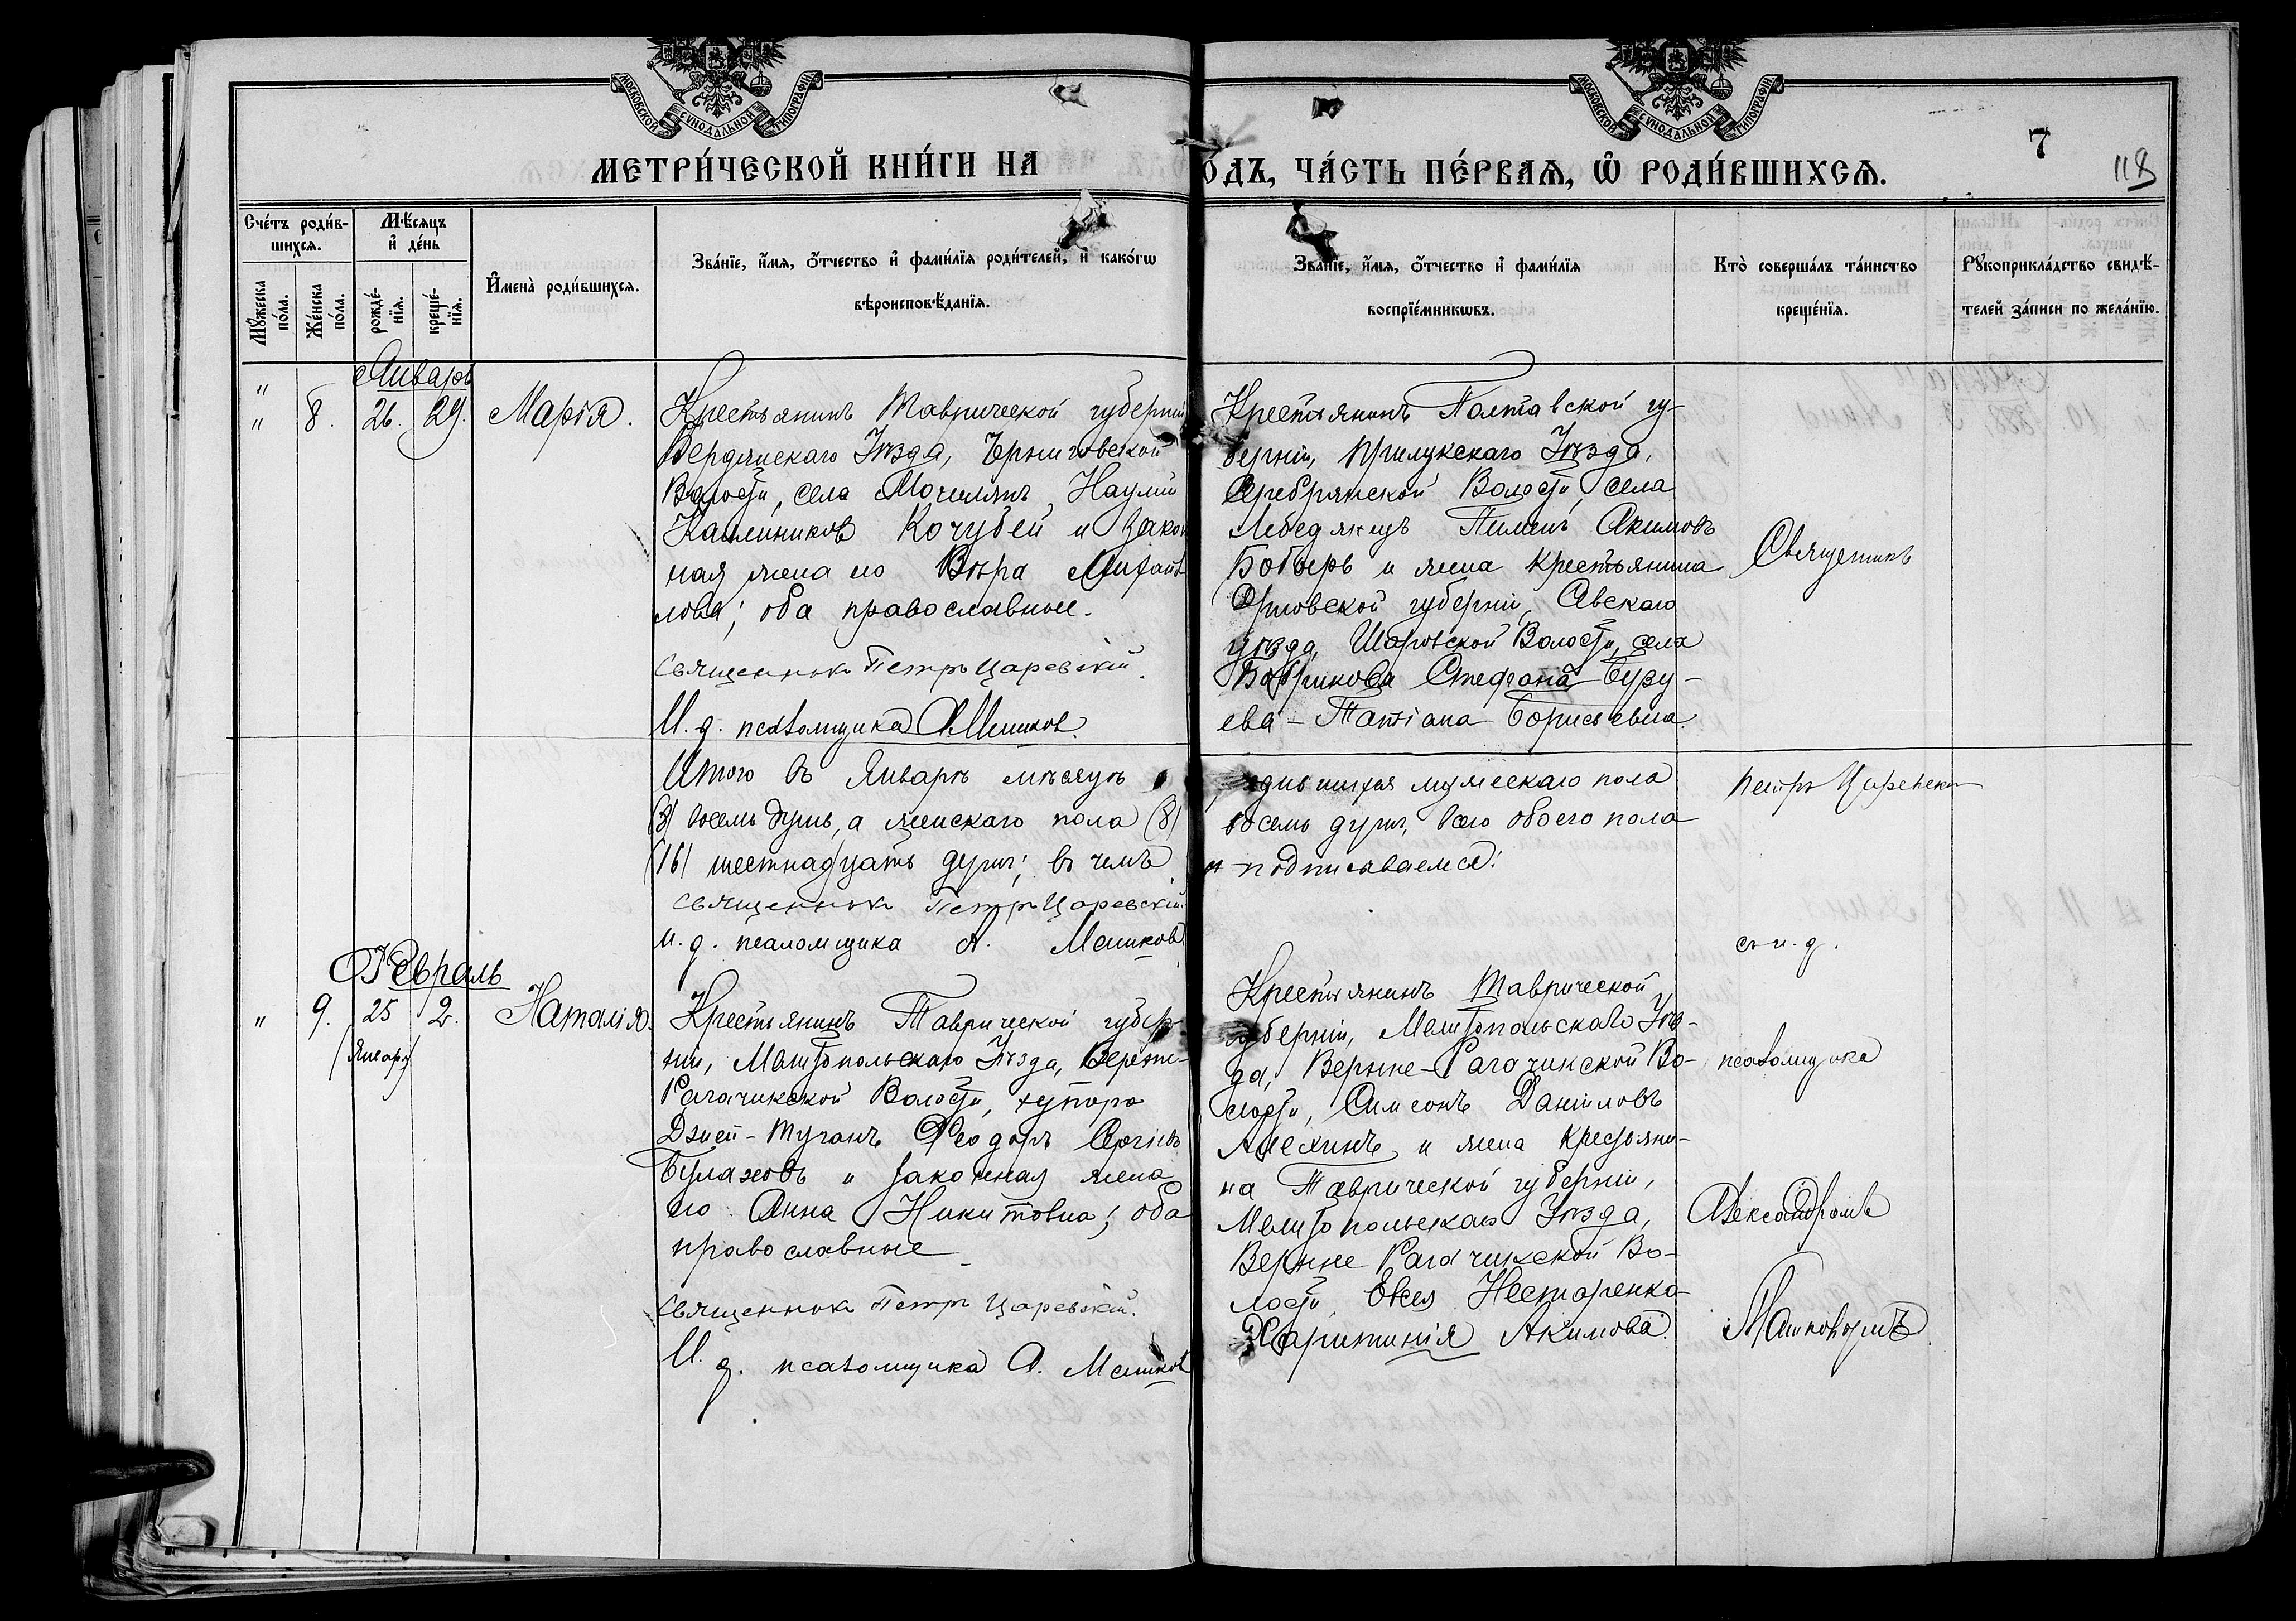 МОСКОВСКОЙ СѴНОДАЛЬНОЙ ТИПОГРАФІИ
МОСКОВСКОЙ СѴНОДАЛЬНОЙ ТИПОГРАФІИ
7
118
МЕТРИ́ЧЕСКОЙ КНИ́ГИ НА
ОДЪ, ЧА́СТЬ ПЕ́РВАѦ, Ѡ҆ РОДИ́ВШИХСѦ.
Сче́тъ роди́в-
шихсѧ.
Мꙋ́жеска
по́ла.
Же́нска
по́ла.
Мѣ́сѧцъ
и҆ де́нь
рожде́-
нїѧ.
креще́-
нїѧ.
И҆мена̀ роди́вшихсѧ.
Зва́нїе, и҆́мѧ, ѻ҆́тчество и҆ фами́лїѧ роди́телей, и҆ како́гѡ
вѣроисповѣ́данїѧ.
Зва́нїе, и҆́мѧ, ѻ҆́тчество и҆ фами́лїѧ
воспрїе́мникѡвъ.
Кто̀ соверша́лъ та́инство
креще́нїѧ.
Рꙋкоприкла́дство свидѣ́-
телей за́писи по жела́нїю.
Январь
"
" 8. 26. 29. Марія.
Крестьянинъ Таврической губерніи
Бердянскаго Уѣзда, Черниговской
Волости, села Наумъ
Калиников Кочубей и закон
ная жена его Вѣра Михай
лова; оба православные.
Священник Петръ Царевскій.
И. д. псаломщика А. Мешков.
Крестьянинъ Полтавской гу-
берніи, Прилукскаго Уѣзда,
Сребрянской Волости, села
Лебединцъ Пименъ Акимовъ
Бобырь и жена крестьянина
Орловской губерніи, Сѣвскаго
уѣзда, Шаровской Волости, села
Бобрикова Стефана
ева - Татіана Борисьевна.
Священникъ
Итого въ Январѣ мѣсяцѣ
(8) восемь душъ, а женскаго пола (8)
(16) шестнадцать душъ; въ чемъ
Священник Петръ Царевскій
и. д. псаломщика А. Мешков
родившихся мужескаго пола
восемь душъ, всего обоего пола
и подписываемся:
Петръ Царевскій
съ и. д.
Февраль
" 9. 25 2. Наталія.
(Января)
Крестьянинъ Таврической губер
ніи, Мелитопольскаго Уѣзда, Верхне-
Рагачикской Волости, хутора
Феодоръ Сергіевъ
Булахов и законная жена
его Анна Никитовна; оба
православные
Священник Петръ Царевскій.
И. д. псаломщика А. Мешков
Крестьянинъ Таврической
губерніи, Мелитопольскаго Уѣз-
да, Верхне-Рагачикской Во-
лости, Симеонъ Даниловъ
Алехинъ и жена крестьяни-
на Таврической губерніи,
Мелитопольскаго Уѣзда,
Верхне Рагачикской Во-
лости, Евсея Нестеренко
Харитинія Акимова.
псаломщика
Александромъ
Мешковымъ